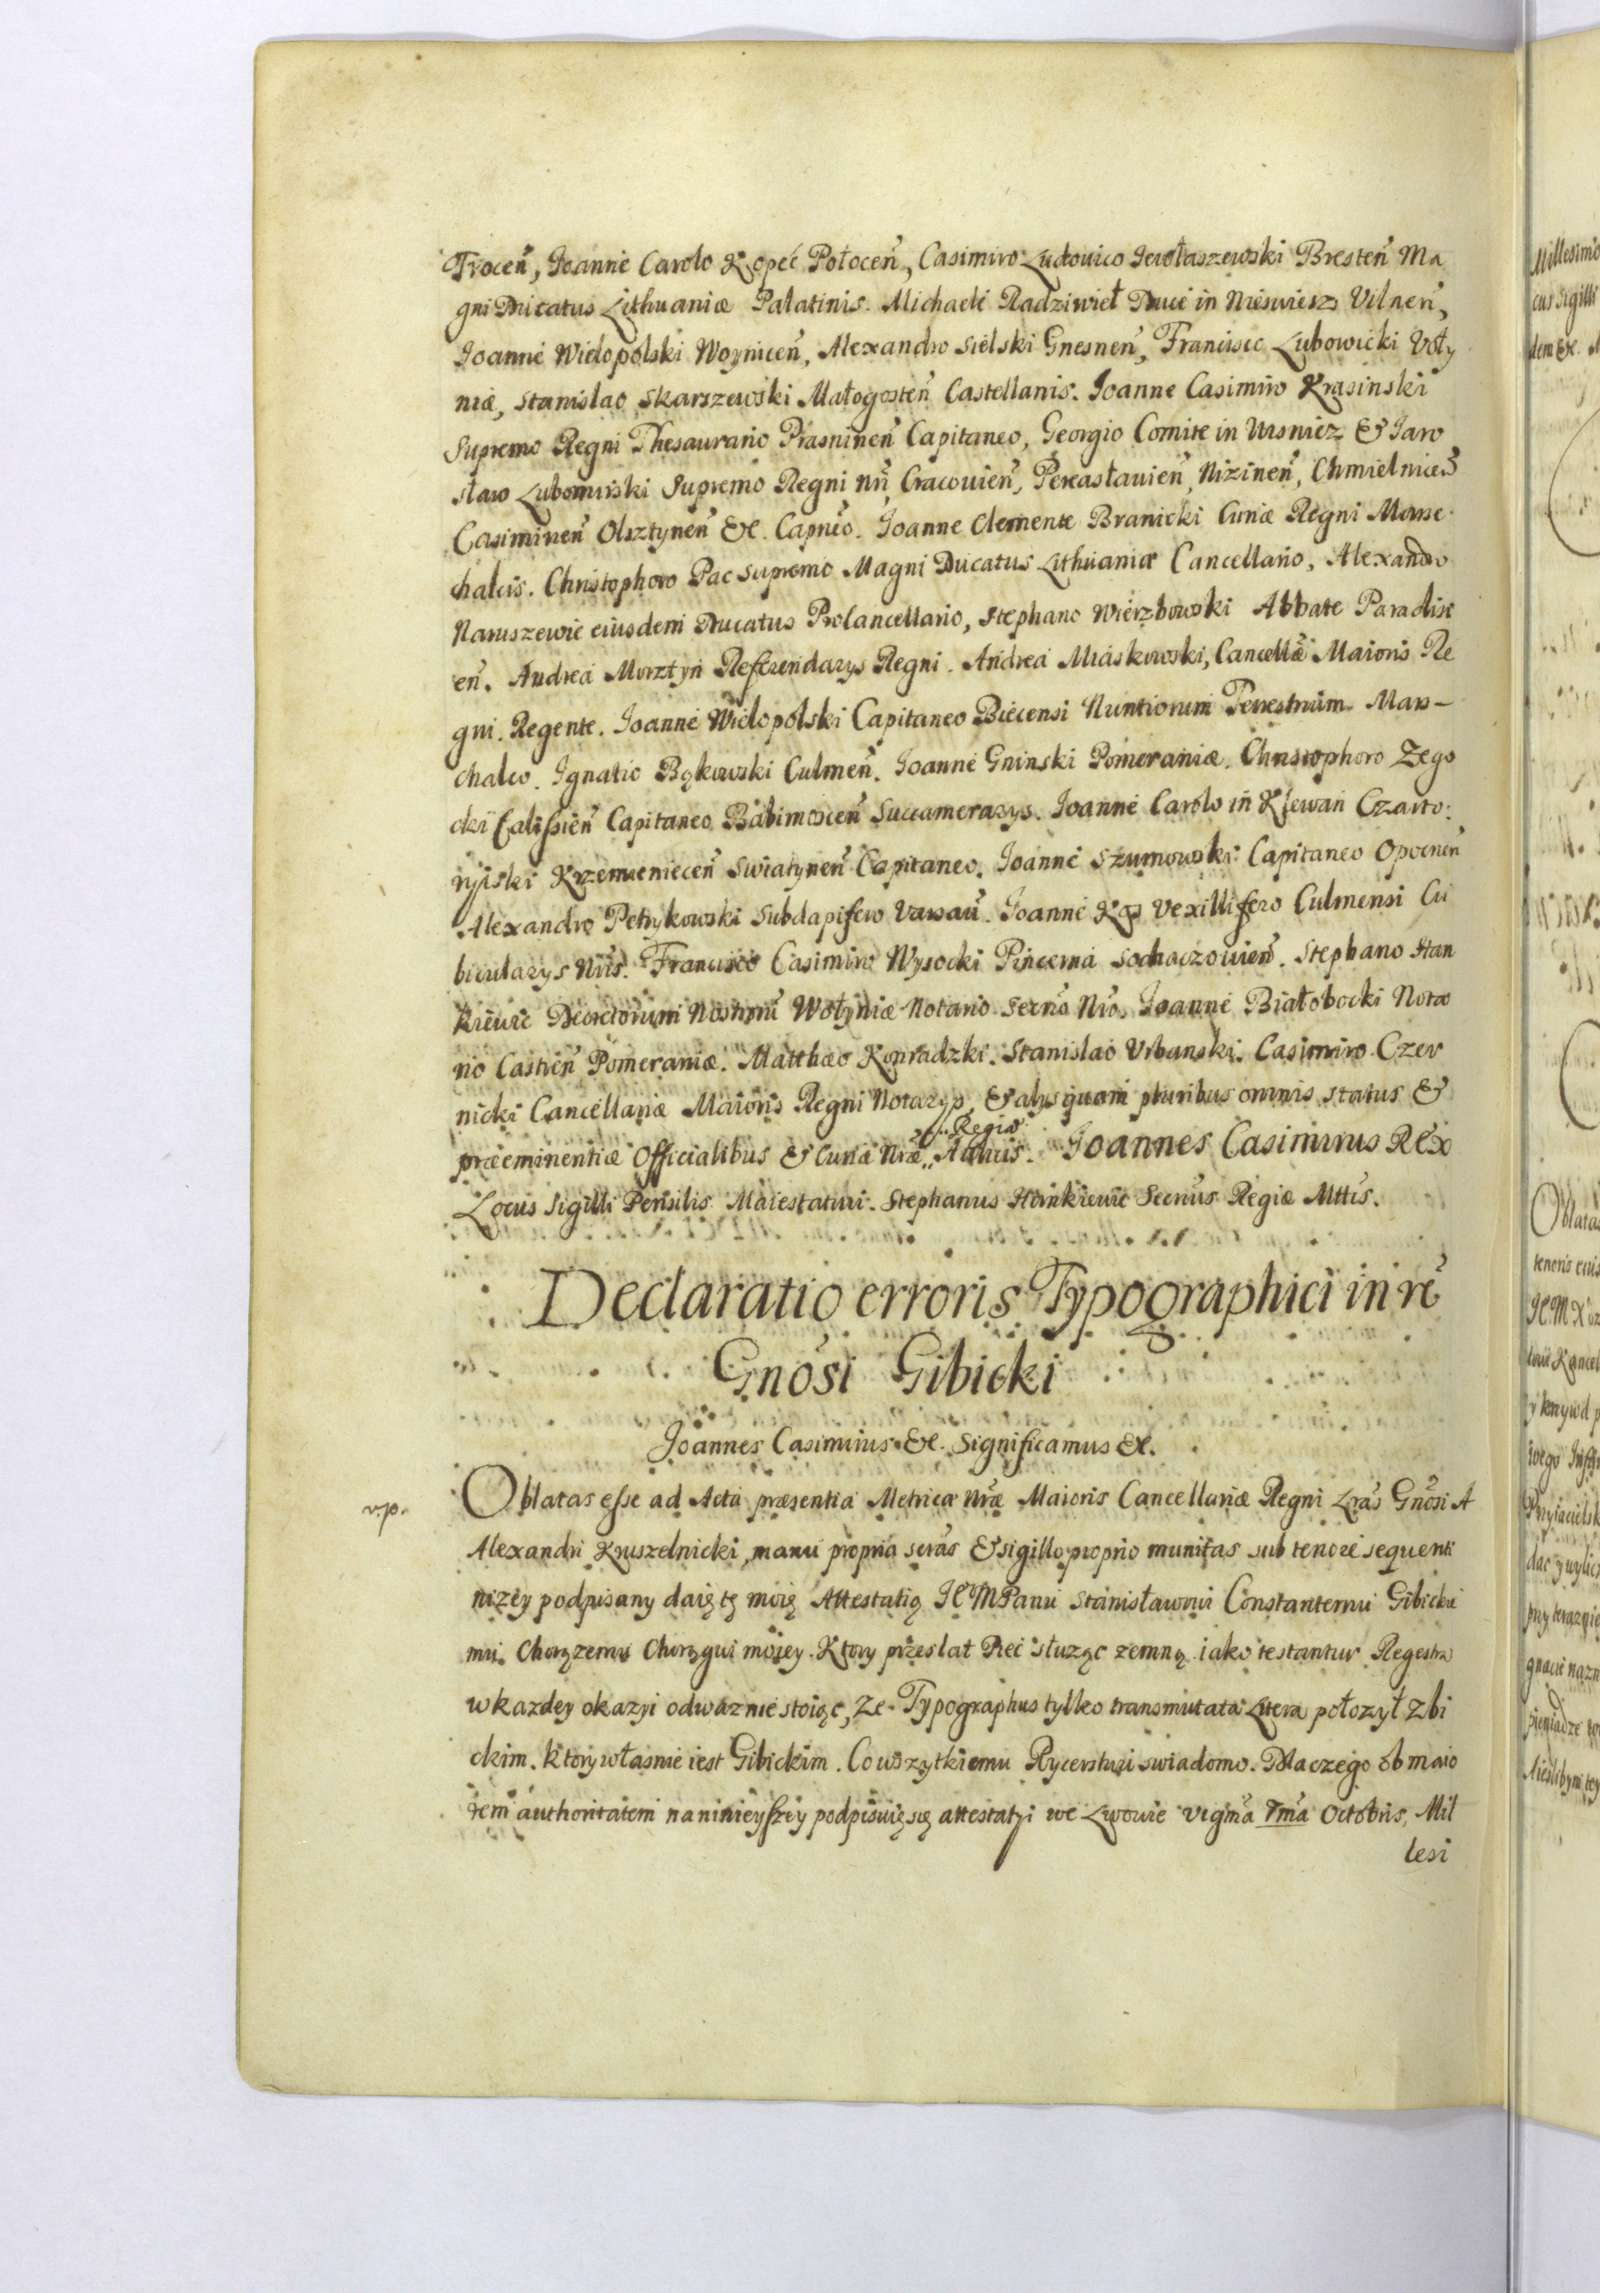 Trocen̄, Joanne Carolo Kopeć Połocen̄, Casimiro Ludovico Jewłaszewski Bresten̄ Ma
gni Ducatus Lithuaniæ Palatinis. Michaele Radziwieł Duce in Nieswiesz Vilnen̄,
Joanne Wielopolski Woynicen̄, Alexandro Sielski Gnesnen̄, Francisco Lubowicki Voły
niæ, Stanislao Skarszewski Małogosten̄ Castellanis. Joanne Casimiro Krasinski
Supremo Regni Thesaurario Prasninen̄ Capitaneo, Georgio Comite in Wisnicz & Jaro
sław Lubomirski Supremo Regni nr̄i Cracovien̄, Pereasłavien̄, Nizinen̄, Chmielnicen̄
Casimiren̄ Olsztynen̄ &c. Capn̄eo. Joanne Clemente Branicki Curiæ Regni Marsc
halcis. Christophoro Pac Supremo Magni Ducatus Lithuaniæ Cancellario, Alexandro
Naruszewic eiusdem Ducatus Procancellario, Stephano Wierzbowski Abbate Paradisi
en̄. Andrea Morztyn Referendarys Regni. Andrea Miaskowski, Cancellæ Maioris Re
gni Regente. Joanne Wielopolski Capitaneo Biecensi Nuntiorum Terrestrium Mars-
chalco. Ignatio Bąkowski Culmen̄. Joanne Gninski Pomeraniæ. Christophoro Zego
cki Calissien̄ Capitaneo Babimoscen̄ Succamerarys. Joanne Carolo in Klewan Czarto:
ryiski Krzemieniecen̄ Swiatynen̄ Capitaneo. Joanne Szumowski Capitaneo Opocnen̄
Alexandro Petrykowski Subdapifero Varsav̄. Joanne Kos Vexillifero Culmensi Cu
bicularys Nr̄is. Francisco Casimiro Wysocki Pincerna Sochaczovien̄. Stephano Han
kiewic Decretorum Nostrorū Wołyniæ Notario Secr̄io Nr̄o. Joanne Białobocki Nota
rio Castren̄ Pomeraniæ. Matthæo Konradzki. Stanislao Urbanski. Casimiro Czer
nicki Cancellariæ Maioris Regni Notarys, & alys quam pluribus omnis status &
præeminentiæ Officialibus & Curiæ Nr̄æ Regiæ Aulicis. Joannes Casimirus Rex
Locus Sigilli Pensilis Maiestatici. Stephanus Hankiewic Secr̄ius Regiæ Mttis.
Declaratio erroris Typographici in re
Gn̄osi Gibicki
Joannes Casimirus &c. Significamus &c.
v.p.
Oblatas esse ad Acta præsentia Metricæ Nr̄æ Maioris Cancellariæ Regni Lr̄as Gn̄osi A
Alexandri Kruszelnicki, manu propria scr̄as & sigillo proprio munitas sub tenore sequenti
nizey podpisany daię tę moię Attestatią JEM Panu Stanisławowi Constantemu Gibickie
mu. Chorązemu Chorągwi moiey. Ktory przeslat Pięć słuząc zemną iako testantur Regestra
w kazdey okazyi odwaznie stoiąc, Ze Typographus tylko transmutata Litera połozył Zbi
ckim. ktory własnie iest Gibickim. Co wszytkiemu Rycerstwu swiadomo. Dlaczego ob maio
rem authoritatem na ninieyszey podpisuię się attestatyi we Lwowie Vigm̄a 7ma Octobris, Mil
lesi